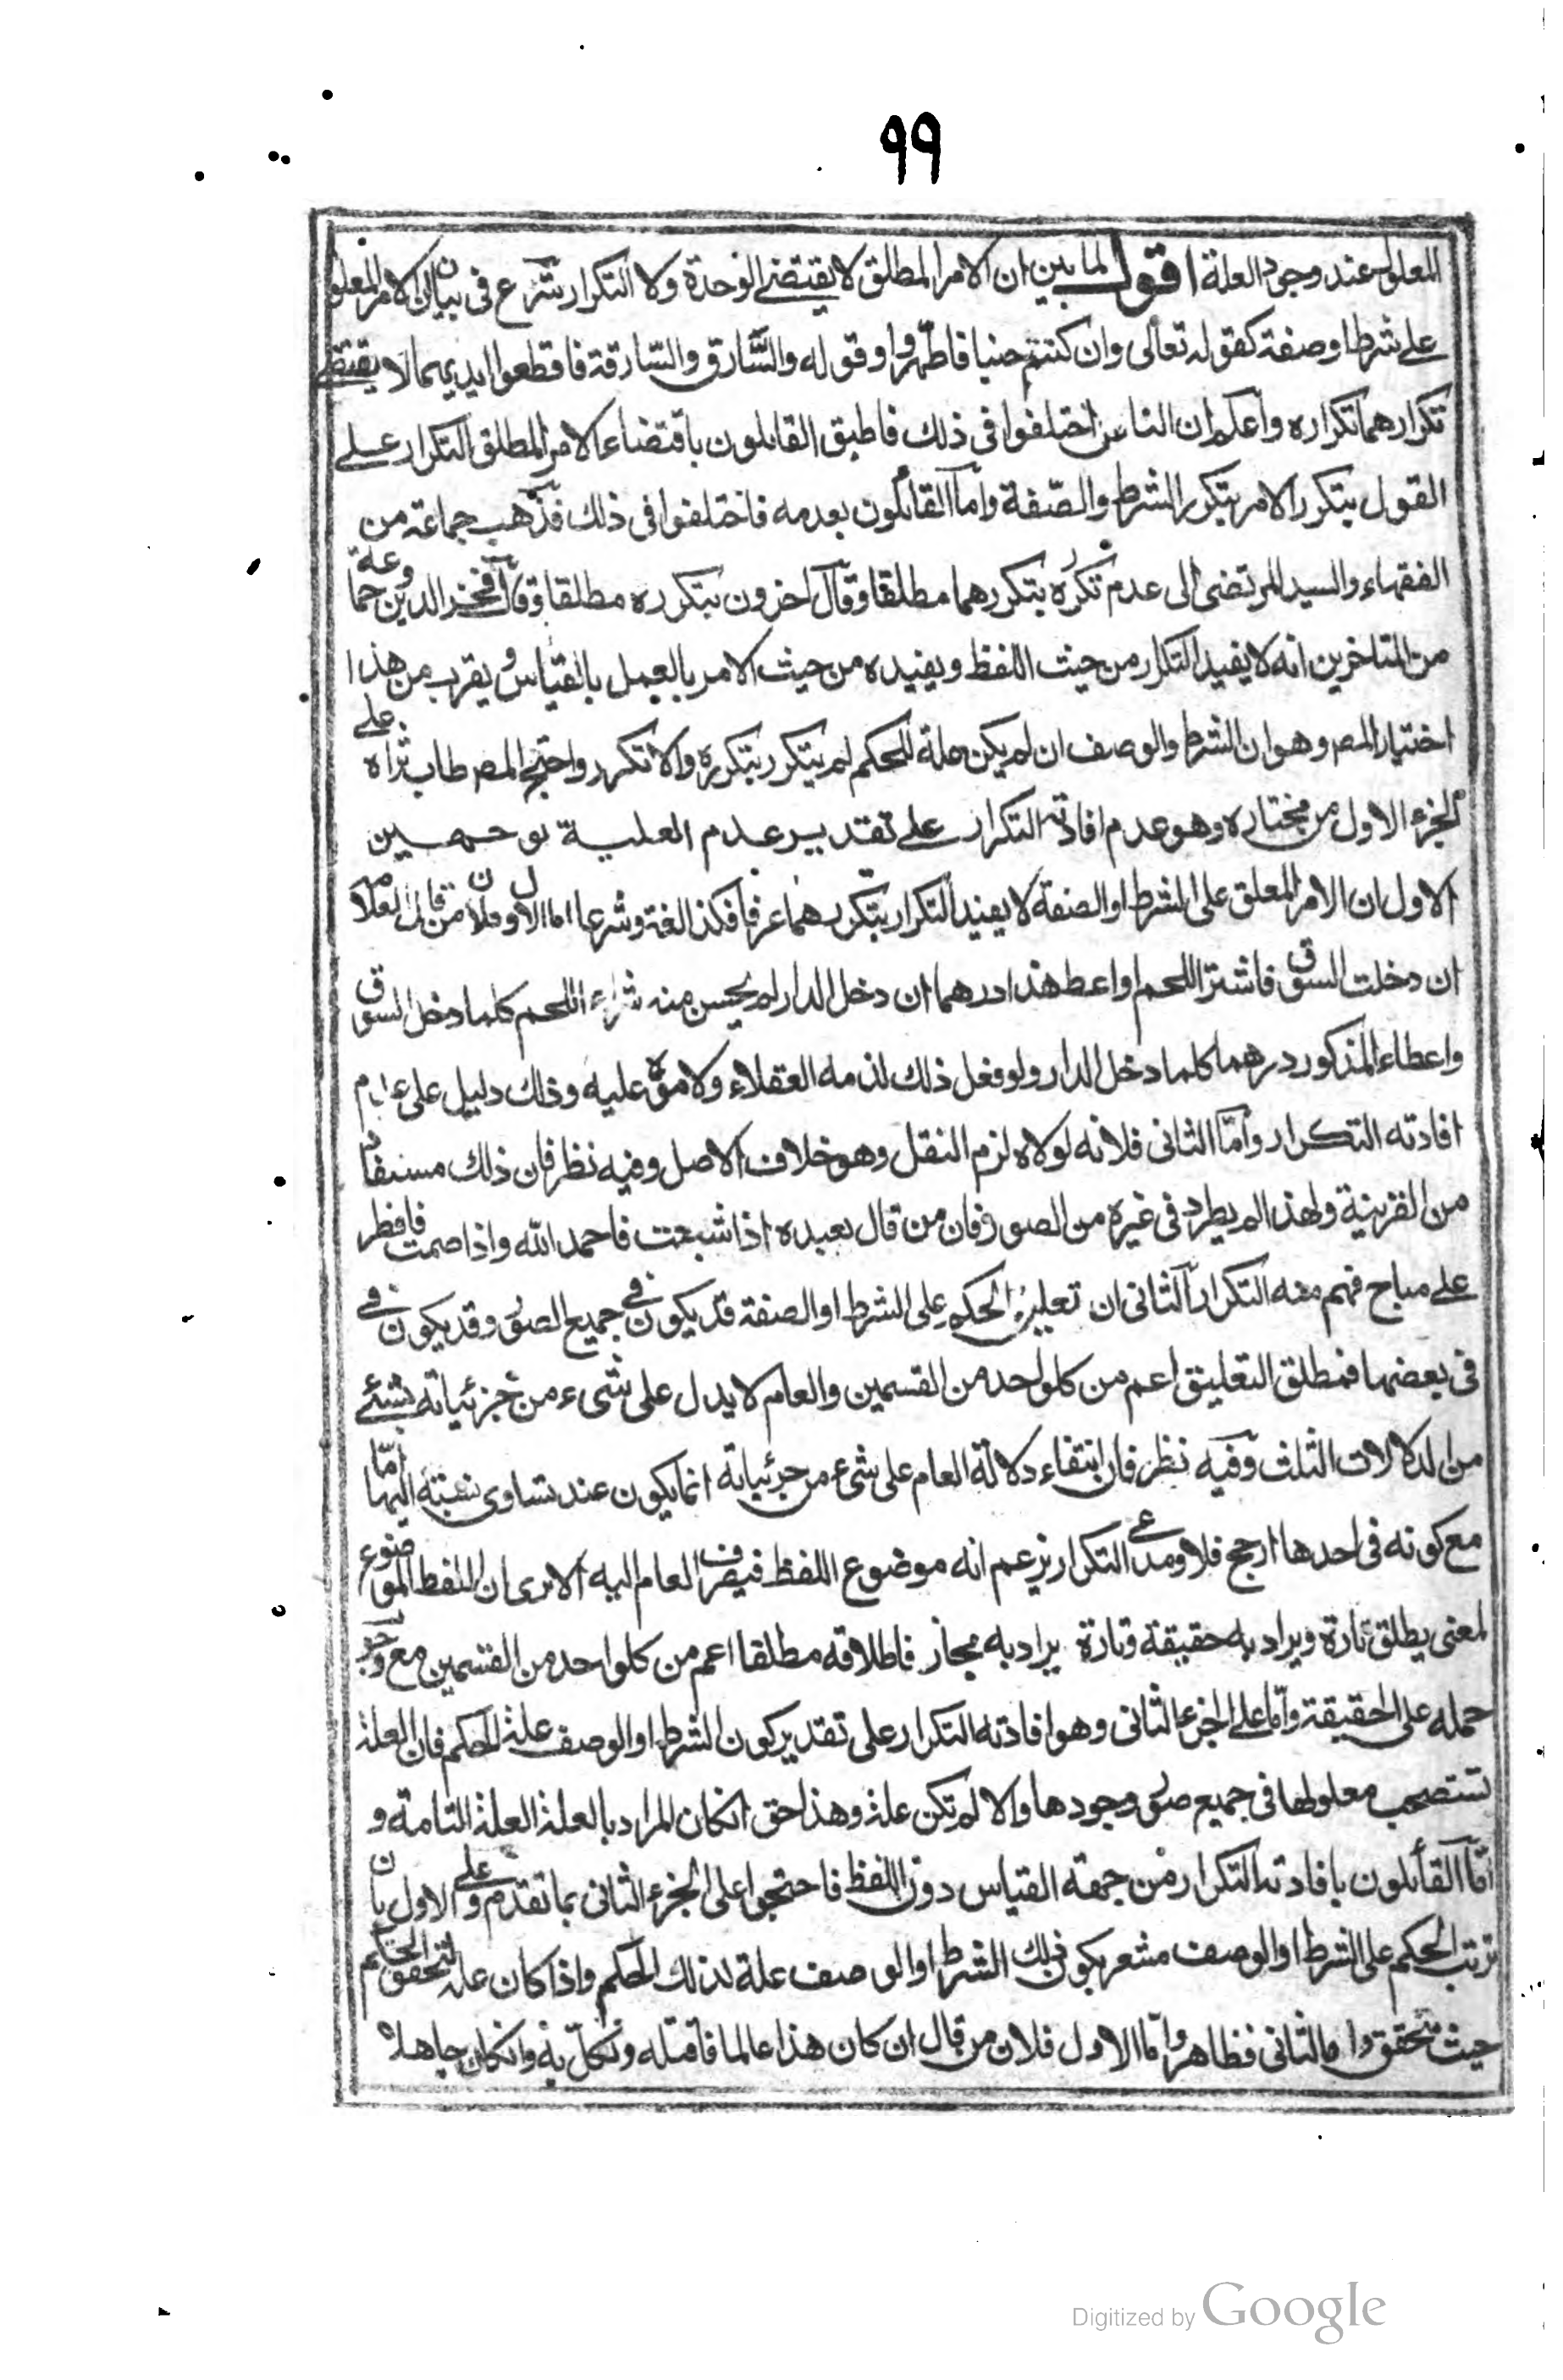 ٩٩
المعلول عند وجود العلة اقول لما بين ان الامر المطلق لا يقتضى الوحدة ولا التكرار شرع فى بيان ان الامر المعلق
على شرط او صفة كقوله تعالى وان كنتم جنبا فاطهروا وقوله والسارق والسارقة فاقطعوا ايديهما لا يقتضى
تكرارهما تكراره واعلم ان الناس اختلفوا فى ذلك فاطبق القائلون باقتضاء الامر المطلق التكرار على
القول بتكرر الامر بتكرر الشرط والصفة واما القائلون بعدمه فاختلفوا فى ذلك فذهب جماعة من
الفقهاء والسيد المرتضى الى عدم تكرره بتكررهما مطلقا وقال اخرون بتكرره مطلقا وقال فخر الدين وجماعة
من المتاخرين انه لا يفيد التكرار من حيث اللفظ ويفيده من حيث الامر بالعمل بالقياس ويقرب من هذا
اختيار المصـ وهو ان الشرط والوصف ان لم يكن علة للحكم لم يتكرر بتكرره والا تكرر واحتج المصـ طاب ثراه على
الجزء الاول من مختاره وهو عدم افادته التكرار على تقدير عدم العلية بوجهين
الاول ان الامر المعلق على الشرط او الصفة لا يفيد التكرار بتكررهما عرفا فكذا لغة وشرعا اما الاول فلان من قال لغلامه
ان دخلت السوق فاشتر اللحم او اعط هذا درهما ان دخل الدار لم يحسن منه شراء اللحم كلما دخل السوق
واعطاء المذكور درهما كلما دخل الدار ولو فعل ذلك لذمه العقلاء ولاموه عليه وذلك دليل على عدم
افادته التكرار واما الثانى فلانه لولاه لزم النقل وهو خلاف الاصل وفيه نظر فان ذلك مستفاد
من القرينة ولهذا لم يطرد فى غيره من الصور فان من قال بعبده اذا شبعت فاحمد الله واذا صمت فافطر
على مباح فهم منه التكرار الثانى ان تعليق الحكم على الشرط او الصفة قد يكون فى جميع الصور وقد يكون فى
فى بعضها فمطلق التعليق اعم من كل واحد من القسمين والعام لا يدل على شىء من جزئياته بشئ
من الدلالات الثلث وفيه نظر فان انتفاء دلالة العام على شىء من جزئياته انما يكون عند تساوى نسبته اليها اما
مع كونه فى احدها ارجح فلا ومدعى التكرار يزعم انه موضوع اللفظ فيصرف العام اليه الا يرى ان اللفظ الموضوع
لمعنى يطلق تارة ويراد به حقيقة وتارة يراد به مجاز فاطلاقه مطلقا اعم من كل واحد من القسمين مع وجوب
حمله على الحقيقة واما على الجزء الثانى وهو افادته التكرار على تقدير كون الشرط او الوصف علة الحكم فان العلة
تستصحب معلولها فى جميع صور وجودها والا لم تكن علة وهذا حق ان كان المراد بالعلة العلة التامة و
اما القائلون بافادته التكرار من جهة القياس دون اللفظ فاحتجوا على الجزء الثانى بما تقدم وعلى الاول بان
ترتب الحكم على الشرط او الوصف مشعر بكون ذلك الشرط او الوصف علة لذلك الحكم واذا كان علة لتحقق الحكم
حيث تتحقق واما الثانى فظاهر واما الاول فلان من قال ان كان هذا عالما فاقتله ونكل به وان كان جاهلا
Digitized by Google